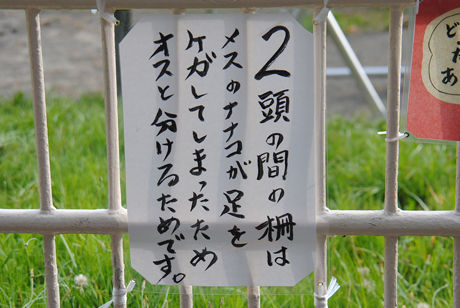 ２頭の間の柵は
メスのナナコが足を
ケガしてしまったため
オスと分けるためです。
どうぶ